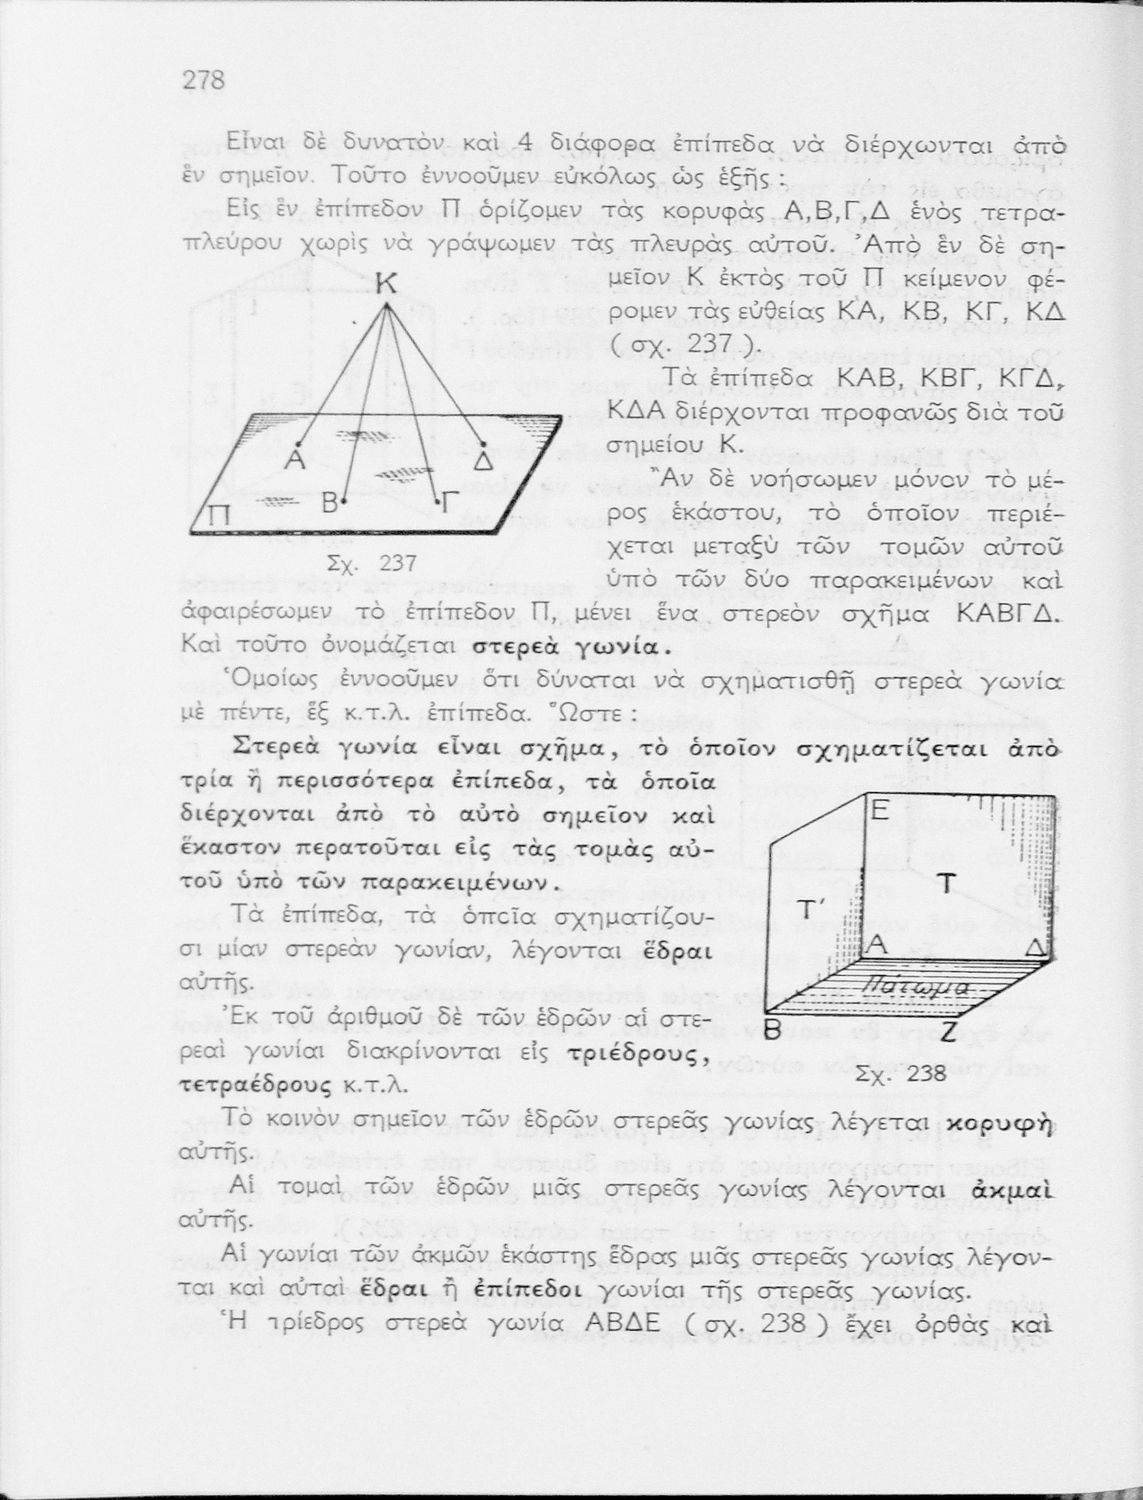 278
Εἶναι δὲ δυνατὸν καὶ 4 διάφορα ἐπίπεδα νὰ διέρχωνται ἀπὸ
ἓν σημεῖον. Τοῦτο ἐννοοῦμεν εὐκόλως ὡς ἑξῆς :
Εἰς ἓν ἐπίπεδον Π ὁρίζομεν τὰς κορυφὰς Α,Β,Γ,Δ ἑνὸς τετρα-
πλεύρου χωρὶς νὰ γράψωμεν τὰς πλευρὰς αὐτοῦ. Ἀπὸ ἓν δὲ ση-
μεῖον Κ ἐκτὸς τοῦ Π κείμενον φέ-
ρομεν τὰς εὐθείας ΚΑ, ΚΒ, ΚΓ, ΚΔ
( σχ. 237 ).
Τὰ ἐπίπεδα ΚΑΒ, ΚΒΓ, ΚΓΔ,
ΚΔΑ διέρχονται προφανῶς διὰ τοῦ
σημείου Κ.
Ἂν δὲ νοήσωμεν μόνον τὸ μέ-
ρος ἑκάστου, τὸ ὁποῖον περιέ-
χεται μεταξὺ τῶν τομῶν αὐτοῦ
ὑπὸ τῶν δύο παρακειμένων καὶ
Κ
Α
Δ
Β
Γ
Π
Σχ. 237
ἀφαιρέσωμεν τὸ ἐπίπεδον Π, μένει ἕνα στερεὸν σχῆμα ΚΑΒΓΔ.
Καὶ τοῦτο ὀνομάζεται στερεὰ γωνία.
Ὁμοίως ἐννοοῦμεν ὅτι δύναται νὰ σχηματισθῇ στερεὰ γωνία
μὲ πέντε, ἓξ κ.τ.λ. ἐπίπεδα. Ὥστε :
Στερεὰ γωνία εἶναι σχῆμα, τὸ ὁποῖον σχηματίζεται ἀπὸ
τρία ἢ περισσότερα ἐπίπεδα, τὰ ὁποῖα
διέρχονται ἀπὸ τὸ αὐτὸ σημεῖον καὶ
ἕκαστον περατοῦται εἰς τὰς τομὰς αὐ-
τοῦ ὑπὸ τῶν παρακειμένων.
Τὰ ἐπίπεδα, τὰ ὁποῖα σχηματίζου-
σι μίαν στερεὰν γωνίαν, λέγονται ἕδραι
αὐτῆς.
Ἐκ τοῦ ἀριθμοῦ δὲ τῶν ἑδρῶν αἱ στε-
ρεαὶ γωνίαι διακρίνονται εἰς τριέδρους,
τετραέδρους κ.τ.λ.
Ε
Τ
Τ′
Α
Δ
Πάτωμα
Β
Ζ
Σχ. 238
Τὸ κοινὸν σημεῖον τῶν ἑδρῶν στερεᾶς γωνίας λέγεται κορυφὴ
αὐτῆς.
Αἱ τομαὶ τῶν ἑδρῶν μιᾶς στερεᾶς γωνίας λέγονται ἀκμαὶ
αὐτῆς.
Αἱ γωνίαι τῶν ἀκμῶν ἑκάστης ἕδρας μιᾶς στερεᾶς γωνίας λέγον-
ται καὶ αὐταὶ ἕδραι ἢ ἐπίπεδοι γωνίαι τῆς στερεᾶς γωνίας.
Ἡ τρίεδρος στερεὰ γωνία ΑΒΔΕ ( σχ. 238 ) ἔχει ὀρθὰς καὶ